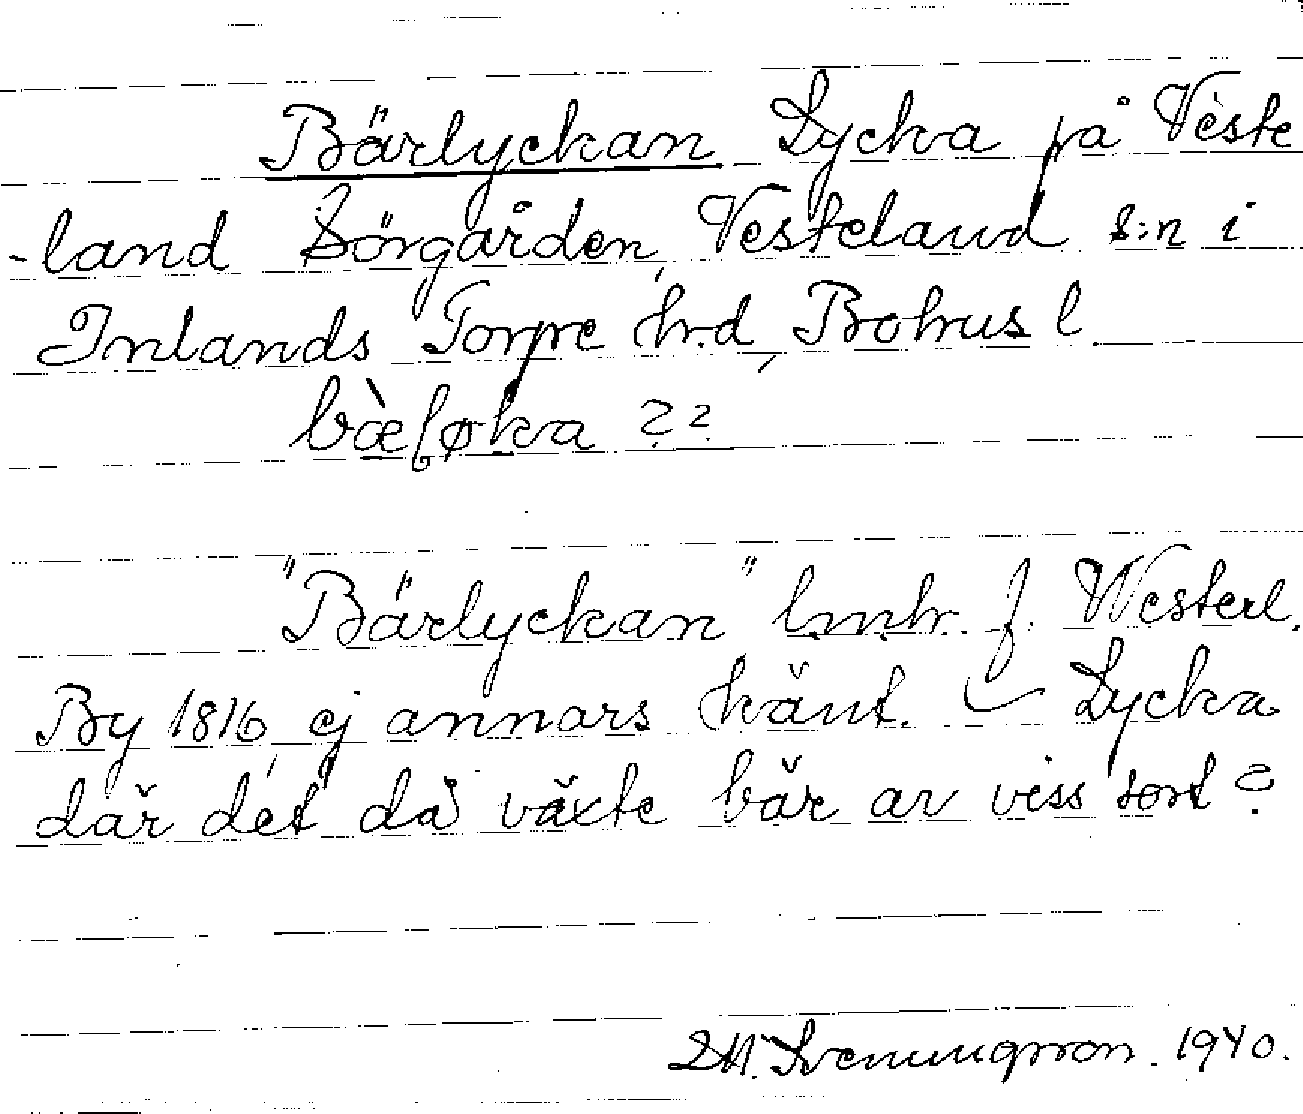 Bärlyckan Lycka på Veste
-land Sörgården, Vesteland s:n i
Inlands Torpe hr.d, Bohus l
bæ̀ɭøkra ??
"Bärlyckan" lmhr. f. Westerl.
By 1816, ej annars känt. – Lycka
där det då växte bär av viss sort?
1940.